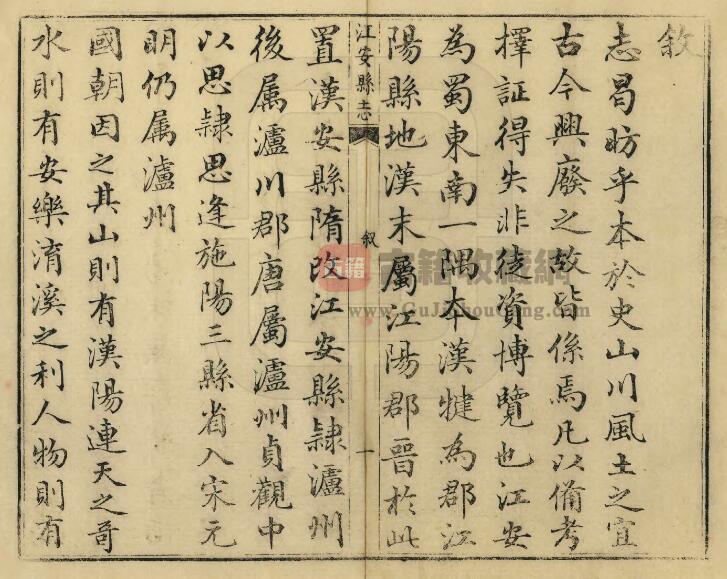 敘
志曷昉乎本於史山川風土之宜
古今興廢之故皆係焉凡以備考
擇証得失非徒資博覽也江安
為蜀東南一隅本漢犍為郡江
陽縣地漢末屬江陽郡晉於此
江安縣志
敘
一
置漢安縣隋改江安縣隸瀘州
後属瀘川郡唐屬瀘州貞觀中
以思隸思逢施陽三縣省入宋元
明仍属瀘州
國朝因之其山則有漢陽連天之奇
水則有安樂淯溪之利人物則有
古籍
古籍收藏網
www.GuJiShouCang.com